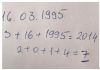 16.03.1995
3+16+1995=2014
2+0+1+4=7